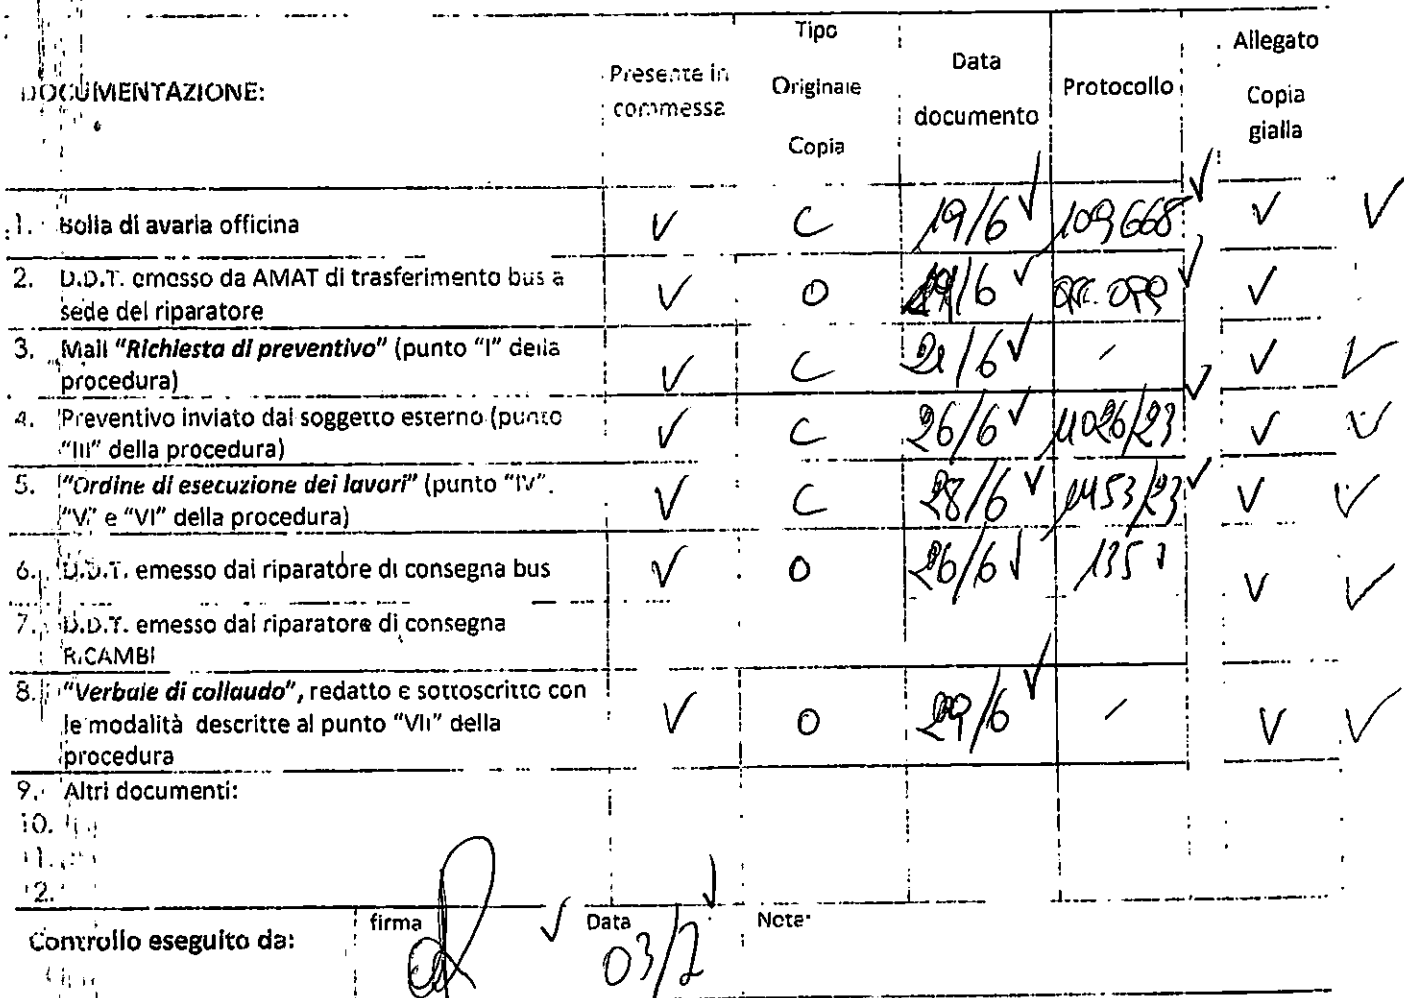 DOCUMENTAZIONE: Presente in commessa Tipo Originale Copia Data documento Protocollo Allegato Copia gialla
1. Bolla di avaria officina V C 19/6 109668 V V
2. D.D.T. emesso da AMAT di trasferimento bus a
sede del riparatore V O 19/6 V
3. Mail "Richiesta di preventivo" (punto "I" della
procedura) V C 21/6 / V V
4. Preventivo inviato dal soggetto esterno (punto
"III" della procedura) V C 26/6 V V
5. "Ordine di esecuzione dei lavori" (punto "IV".
"V" e "VI" della procedura) V C 28/6 V V
6. D.D.T. emesso dal riparatore di consegna bus V O 26/6 135 V V
7. D.D.T. emesso dal riparatore di consegna
RICAMBI
8. "Verbale di collaudo", redatto e sottoscritto con
le modalità descritte al punto "VII" della
procedura V O 29/6 / V V
9. Altri documenti:
10.
11.
12.
Controllo eseguito da: firma Data 03/7 Note: